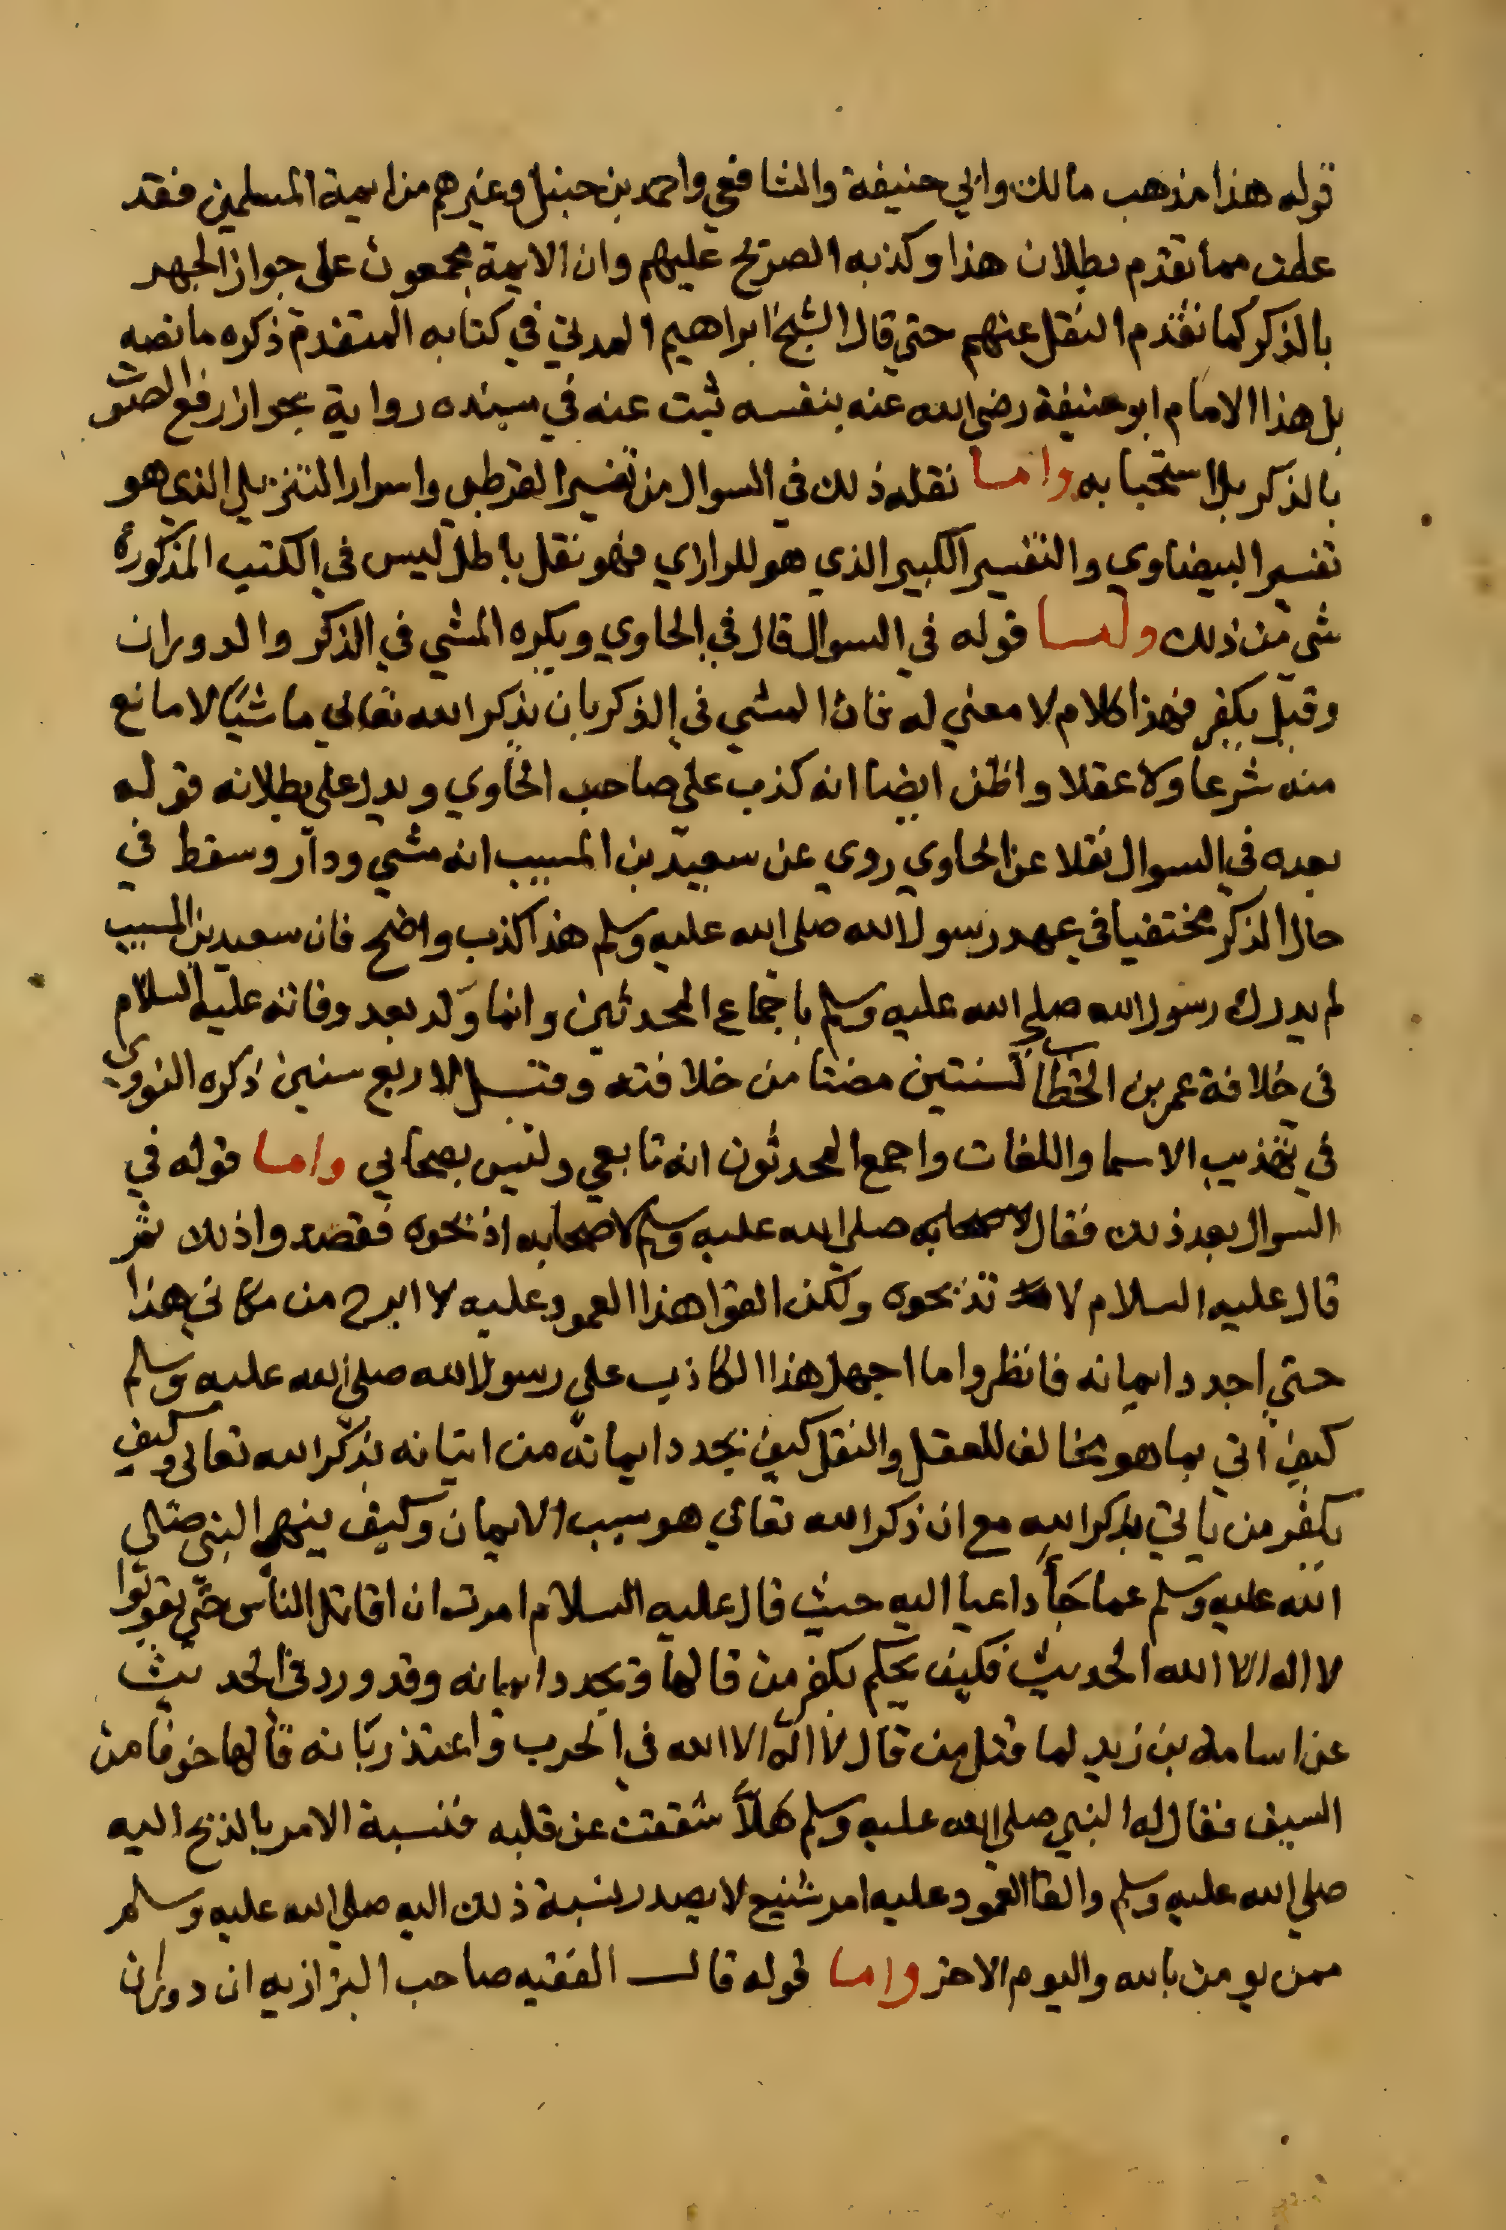 قوله هذا مذهب مالك وابي حنيفة والشافعي واحمد بن حنبل وغيرهم من ايمة المسلمين فقد
علمت مما تقدم بطلان هذا وكذبه الصريح عليهم وان الايمة مجمعون على جواز الجهر
بالذكر كما تقدم النقل عنهم حتي قال الشيخ ابراهيم المدني في كتابه المتقدم ذكره ما نصه
بل هذا الامام ابو حنيفة رضي الله عنه بنفسه ثبت عنه في مسنده رواية بجواز رفع الصوت
بالذكر بل استحبابه واما نقله ذلك في السوال من تفسير القرطبي واسرار التنزيل الذي هو
تفسير البيضاوي والتفسير الكبير الذي هو للرازي فهو نقل باطل ليس في الكتب المذكورة
شي من ذلك واما قوله في السوال قال في الحاوي ويكره المشي في الذكر والدوران
وقيل يكفر فهذا كلام لا معني له فان المشي في الذكر بان يذكر الله تعالي ماشيا لا مانع
منه شرعا ولا عقلا واظن ايضا انه كذب علي صاحب الحاوي ويدل على بطلانه قوله
بعده في السوال نقلا عن الحاوي روي عن سعيد بن المسيب انه مشي ودار وسقط في
حال الذكر مختفيا في عهد رسول الله صلى الله عليه وسلم هذا كذب واضح فان سعيد بن المسيب
لم يدرك رسول الله صلي الله عليه وسلم باجماع المحدثين وانما ولد بعد وفاته عليه السلام
في خلافة عمر بن الخطاب لسنتين مضتا من خلافته وقيل لاربع سنين ذكره النووي
في تهذيب الاسما واللغات واجمع المحدثون انه تابعي وليس بصحابي واما قوله في
السوال بعد ذلك فقال صلى الله عليه وسلم لاصحابه اذبحوه فقصدوا ذلك ثم
قال عليه السلام لا تذبحوه ولكن القوا هذا العمود عليه لا ابرح من مكاني هذا
حتي اجدد ايمانه فانظروا ما اجهل هذا الكاذب علي رسول الله صلى الله عليه وسلم
كيف اتي بما هو مخالف للعقل والنقل كيف يجدد ايمانه من اتيانه بذكر الله تعالى وكيف
يكفر من ياتي بذكر الله مع ان ذكر الله تعالي هو سبب الايمان وكيف ينهي النبي صلي
الله عليه وسلم عما جاء داعيا اليه حيث قال عليه السلام امرت ان اقاتل الناس حتي يقولوا
لا اله الا الله الحديث فكيف يحكم بكفر من قالها ويجدد ايمانه وقد ورد في الحديث
عن اسامة بن زيد لما قتل من قال لا اله الا الله في الحرب واعتذر بانه قالها خوفا من
السيف فقال له النبي صلى الله عليه وسلم هلا شققت عن قلبه فنسبة الامر بالذبح اليه
صلي الله عليه وسلم والقا العمود عليه امر شنيع لا يصدر نسبة ذلك اليه صلي الله عليه وسلم
ممن يومن بالله واليوم الاخر واما قوله قال الفقيه صاحب البزازيه ان دوران